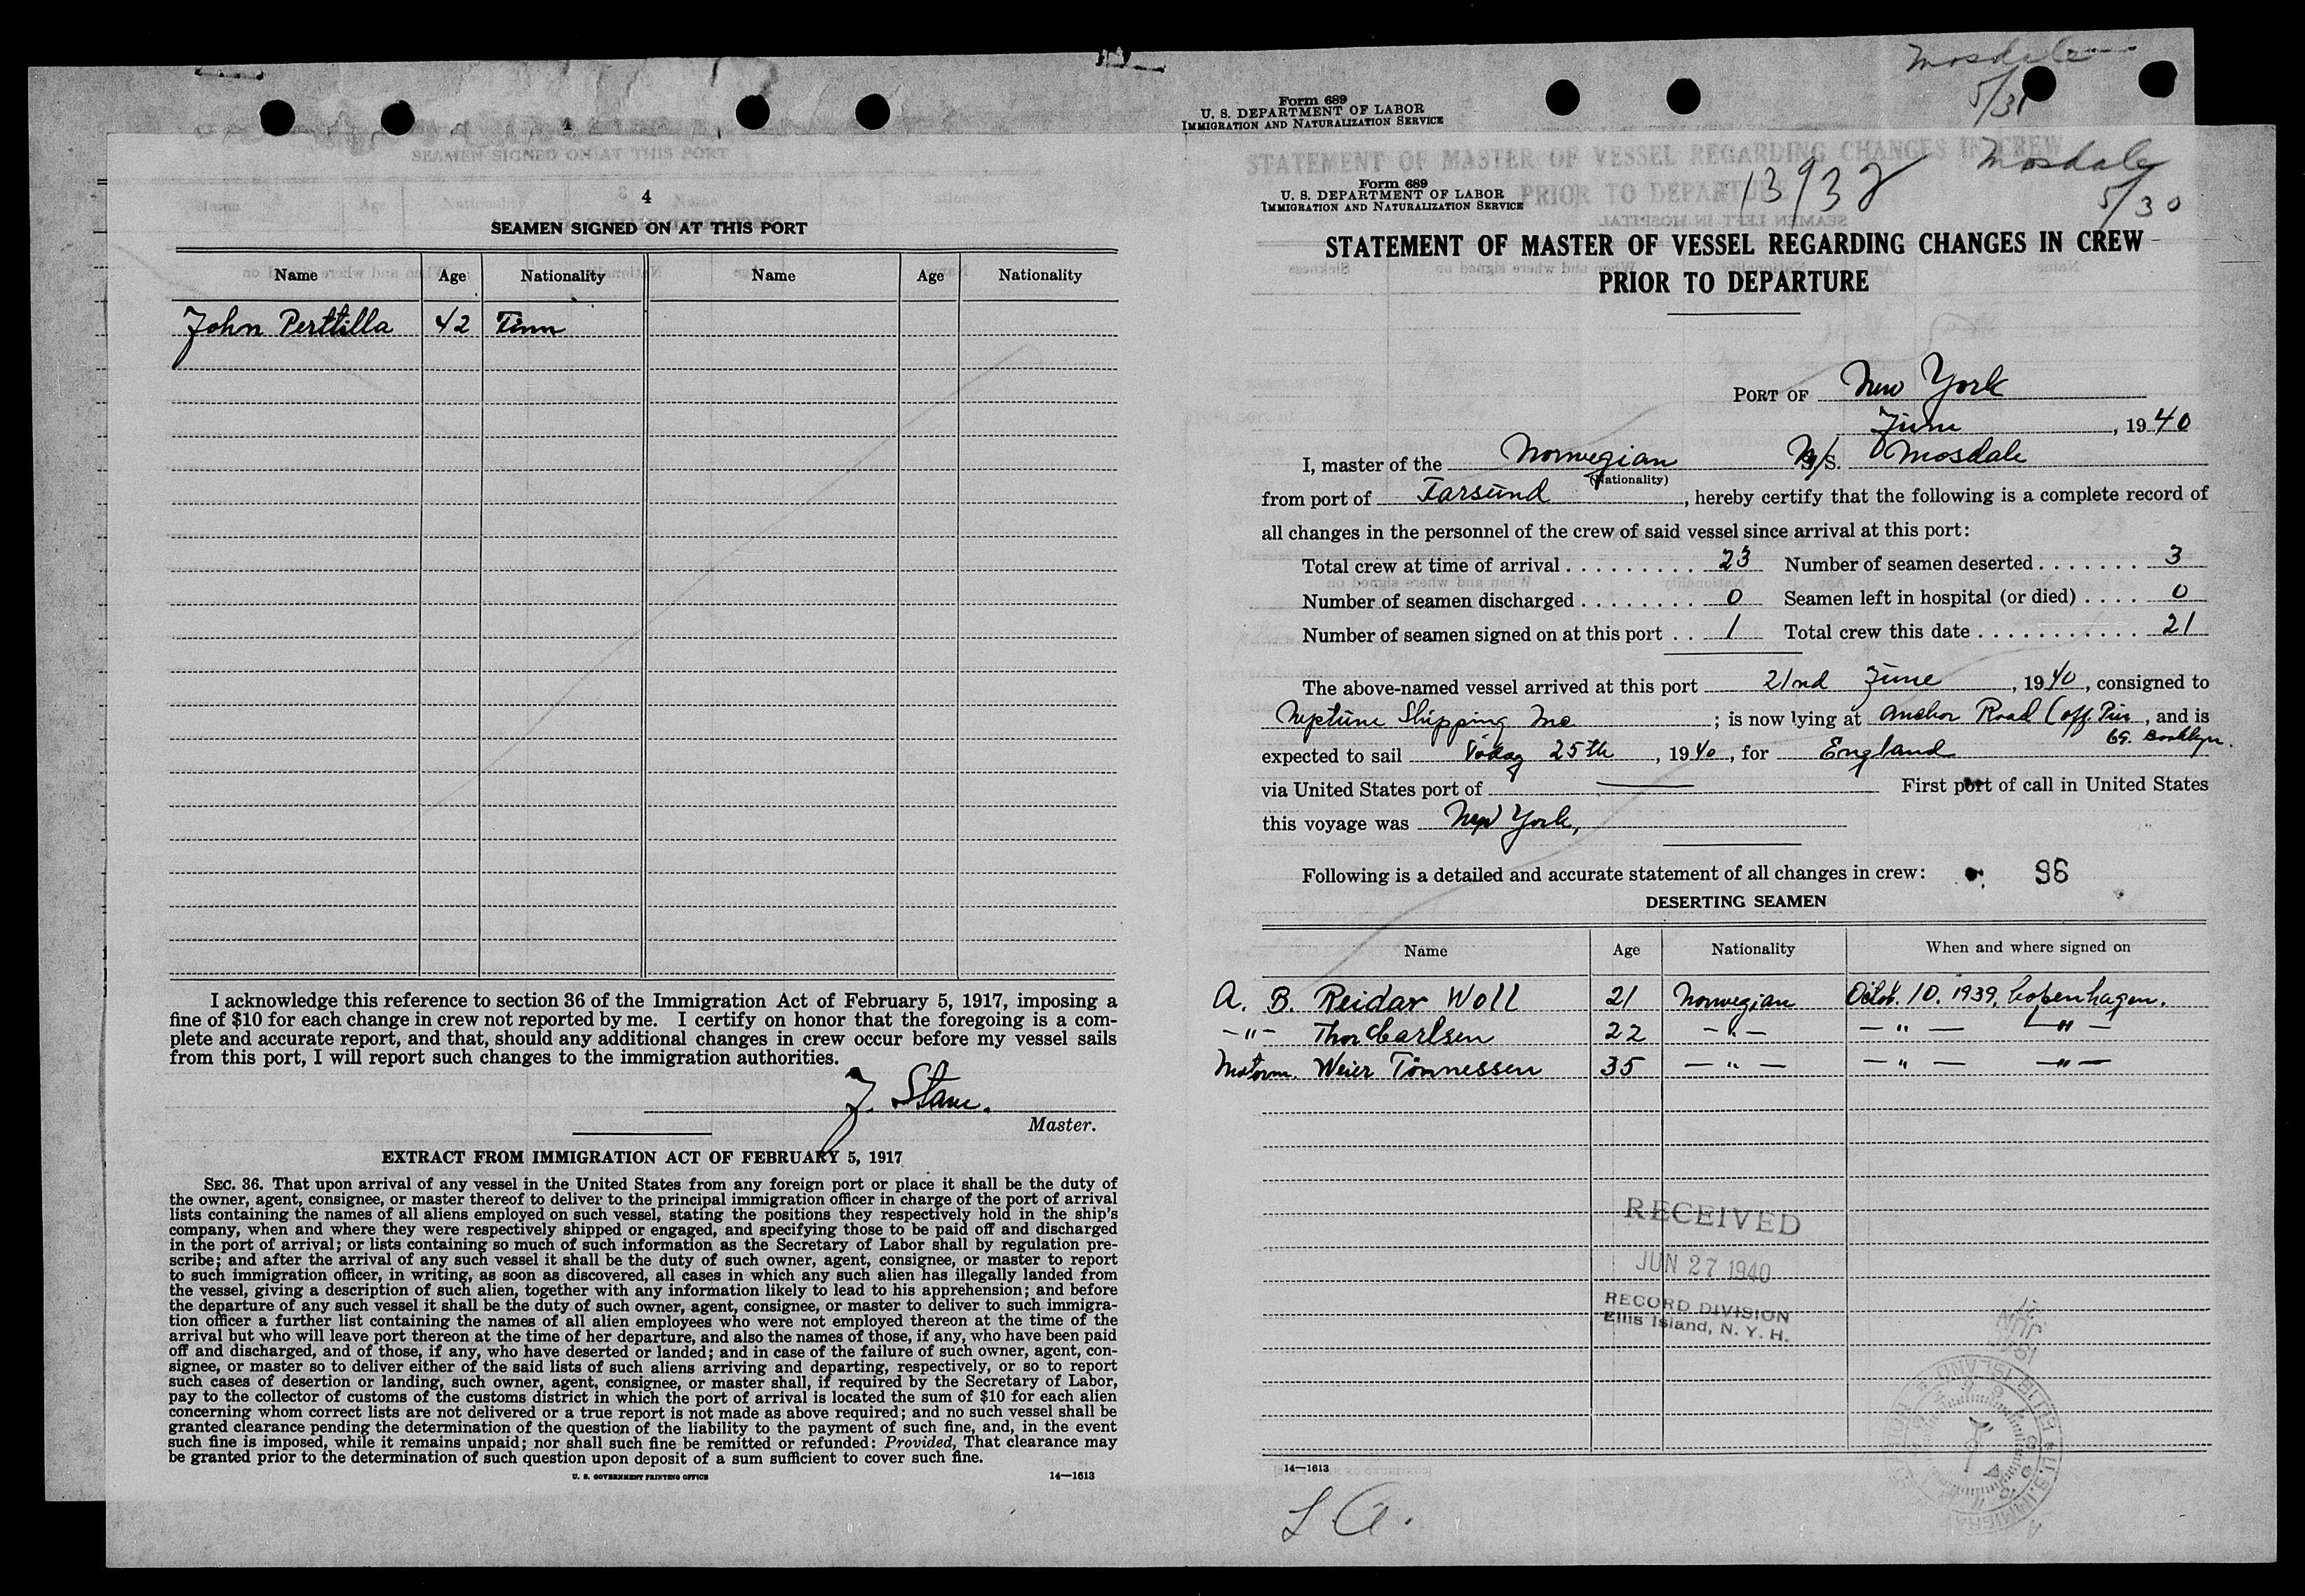 Mosdale
5/31
Form 689
U. S. DEPARTMENT OF LABOR
IMMIGRATION AND NATURALIZATION SERVICE
4
SEAMEN SIGNED ON AT THIS PORT
Name Age Nationality Name Age Nationality
John Perttilla 42 Finn
I acknowledge this reference to section 36 of the Immigration Act of February 5, 1917, imposing a
fine of $10 for each change in crew not reported by me. I certify on honor that the foregoing is a com-
plete and accurate report, and that, should any additional changes in crew occur before my vessel sails
from this port, I will report such changes to the immigration authorities.
J. Stave.
Master.
EXTRACT FROM IMMIGRATION ACT OF FEBRUARY 5, 1917
SEC. 36. That upon arrival of any vessel in the United States from any foreign port or place it shall be the duty of
the owner, agent, consignee, or master thereof to deliver to the principal immigration officer in charge of the port of arrival
lists containing the names of all aliens employed on such vessel, stating the positions they respectively hold in the ship's
company, when and where they were respectively shipped or engaged, and specifying those to be paid off and discharged
in the port of arrival; or lists containing so much of such information as the Secretary of Labor shall by regulation pre-
scribe; and after the arrival of any such vessel it shall be the duty of such owner, agent, consignee, or master to report
to such immigration officer, in writing, as soon as discovered, all cases in which any such alien has illegally landed from
the vessel, giving a description of such alien, together with any information likely to lead to his apprehension; and before
the departure of any such vessel it shall be the duty of such owner, agent, consignee, or master to deliver to such immigra-
tion officer a further list containing the names of all alien employees who were not employed thereon at the time of the
arrival but who will leave port thereon at the time of her departure, and also the names of those, if any, who have been paid
off and discharged, and of those, if any, who have deserted or landed; and in case of the failure of such owner, agent, con-
signee, or master so to deliver either of the said lists of such aliens arriving and departing, respectively, or so to report
such cases of desertion or landing, such owner, agent, consignee, or master shall, if required by the Secretary of Labor,
pay to the collector of customs of the customs district in which the port of arrival is located the sum of $10 for each alien
concerning whom correct lists are not delivered or a true report is not made as above required; and no such vessel shall be
granted clearance pending the determination of the question of the liability to the payment of such fine, and, in the event
such fine is imposed, while it remains unpaid; nor shall such fine be remitted or refunded: Provided, That clearance may
be granted prior to the determination of such question upon deposit of a sum sufficient to cover such fine.
U. S. GOVERNMENT PRINTING OFFICE 14—1613
Form 689
U. S. DEPARTMENT OF LABOR
IMMIGRATION AND NATURALIZATION SERVICE
13932
Mosdale
5/30
STATEMENT OF MASTER OF VESSEL REGARDING CHANGES IN CREW
PRIOR TO DEPARTURE
PORT OF New York
June, 1940
I, master of the Norwegian M/S. Mosdale
(Nationality)
from port of Farsund, hereby certify that the following is a complete record of
all changes in the personnel of the crew of said vessel since arrival at this port:
Total crew at time of arrival . . . . . . . . . . 23 Number of seamen deserted . . . . . . . 3
Number of seamen discharged . . . . . . . . 0 Seamen left in hospital (or died) . . . . 0
Number of seamen signed on at this port . . 1 Total crew this date . . . . . . . . . . . . 21
The above-named vessel arrived at this port 21nd June, 1940, consigned to
Neptune Shipping Inc ; is now lying at anchor Road (off. Pier, and is
69. Booklyn.
expected to sail Today 25th, 1940, for England
via United States port of — First port of call in United States
this voyage was New York,
Following is a detailed and accurate statement of all changes in crew: 96
DESERTING SEAMEN
Name Age Nationality When and where signed on
A. B. Reidar Woll 21 Norwegian Octob. 10. 1939, Copenhagen.
—"— Thor Carlsen 22 —"— —"— —"—
Motorm. Weier Tönnessen 35 —"— —"— —"—
RECEIVED
JUN 27 1940
RECORD DIVISION
Ellis Island, N. Y. H.
14—1613
L A.